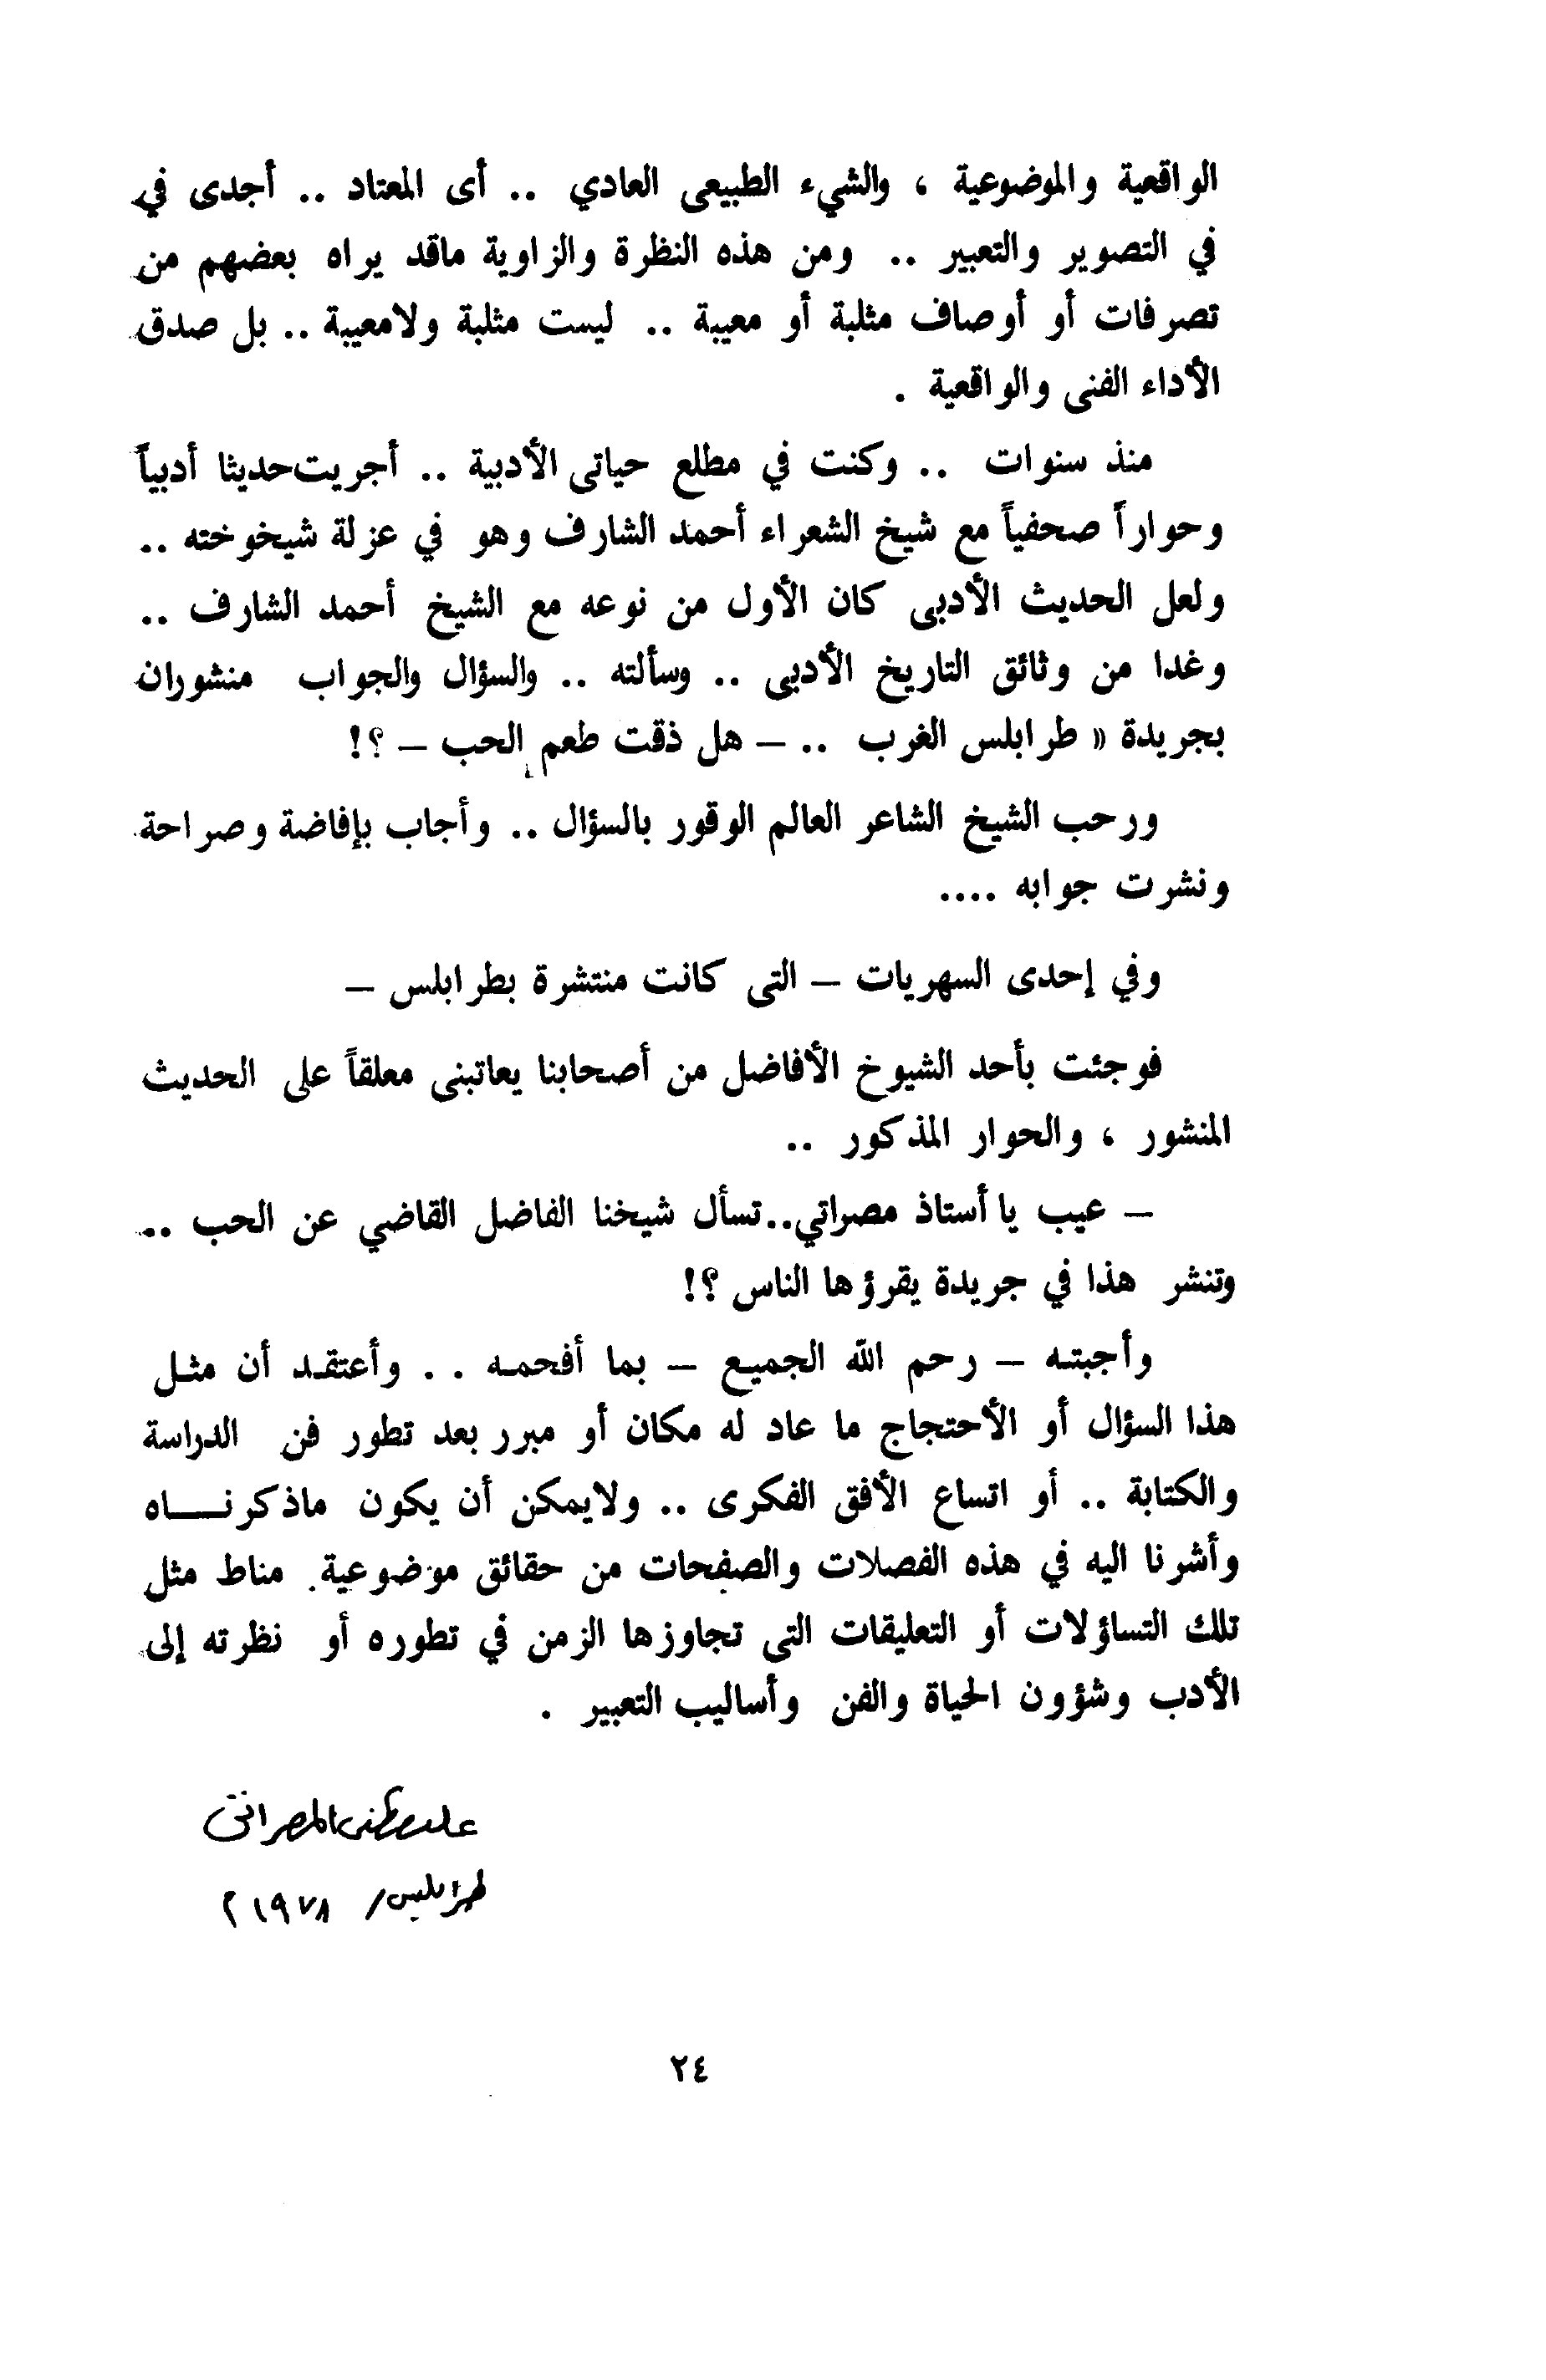 الواقعية والموضوعية ، والشيء الطبيعى العادي .. أى المعتاد .. أجدى في
في التصوير والتعبير .. ومن هذه النظرة والزاوية ماقد يراه بعضهم من
تصرفات أو أوصاف مثلبة أو معيبة .. ليست مثلبة ولامعيبة .. بل صدق
الأداء الفنى والواقعية .
منذ سنوات .. وكنت في مطلع حياتى الأدبية .. أجريت حديثا أدبياً
وحواراً صحفياً مع شيخ الشعراء أحمد الشارف وهو في عزلة شيخوخته ..
ولعل الحديث الأدبى كان الأول من نوعه مع الشيخ أحمد الشارف ..
وغدا من وثائق التاريخ الأدبى .. وسألته .. والسؤال والجواب منشوران
بجريدة « طرابلس الغرب .. – هل ذقت طعم الحب – ؟!
ورحب الشيخ الشاعر العالم الوقور بالسؤال .. وأجاب بإفاضة وصراحة
ونشرت جوابه ....
وفي إحدى السهريات – التى كانت منتشرة بطرابلس –
فوجئت بأحد الشيوخ الأفاضل من أصحابنا يعاتبنى معلقاً على الحديث
المنشور ، والحوار المذكور ..
– عيب يا أستاذ مصراتي.. تسأل شيخنا الفاضل القاضي عن الحب ..
وتنشر هذا في جريدة يقرؤها الناس ؟!
وأجبتـه – رحم الله الجميـع – بما أفحمـه . . وأعتقـد أن مثـل
هذا السؤال أو الأحتجاج ما عاد له مكان أو مبرر بعد تطور فن الدراسة
والكتابة .. أو اتساع الأفق الفكرى .. ولايمكن أن يكون ماذكرنـــاه
وأشرنا اليه في هذه الفصلات والصفحات من حقائق موضوعية. مناط مثل
تلك التساؤلات أو التعليقات التى تجاوزها الزمن في تطوره أو نظرته إلى
الأدب وشؤون الحياة والفن وأساليب التعبير .
على مصطفى المصراتى
طرابلس / ١٩٧٨ م
٢٤